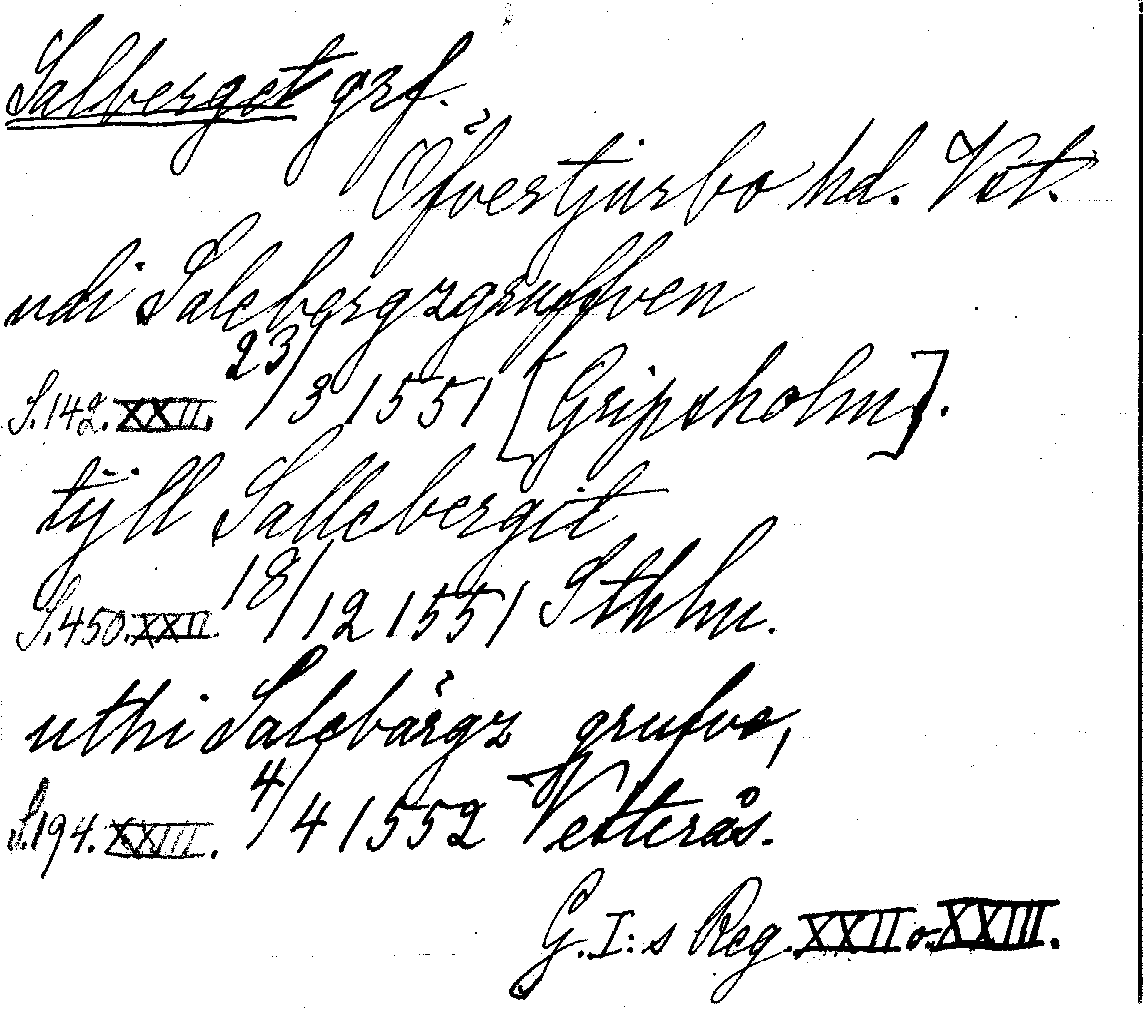 Salberget grf.
Öfvertjurbo hd. Vst.
udi Salebergzgruffven
S. 142. XXII. 23/3 1551 [Gripsholm].
tÿll Sallebergit
S. 450. XXII. 18/12 1551 Sthlm.
uthi Salebärgz grufve,
S. 194. XXIII. 4/4 1552 Vesterås.
G. I:s Reg. XXII o. XXIII.